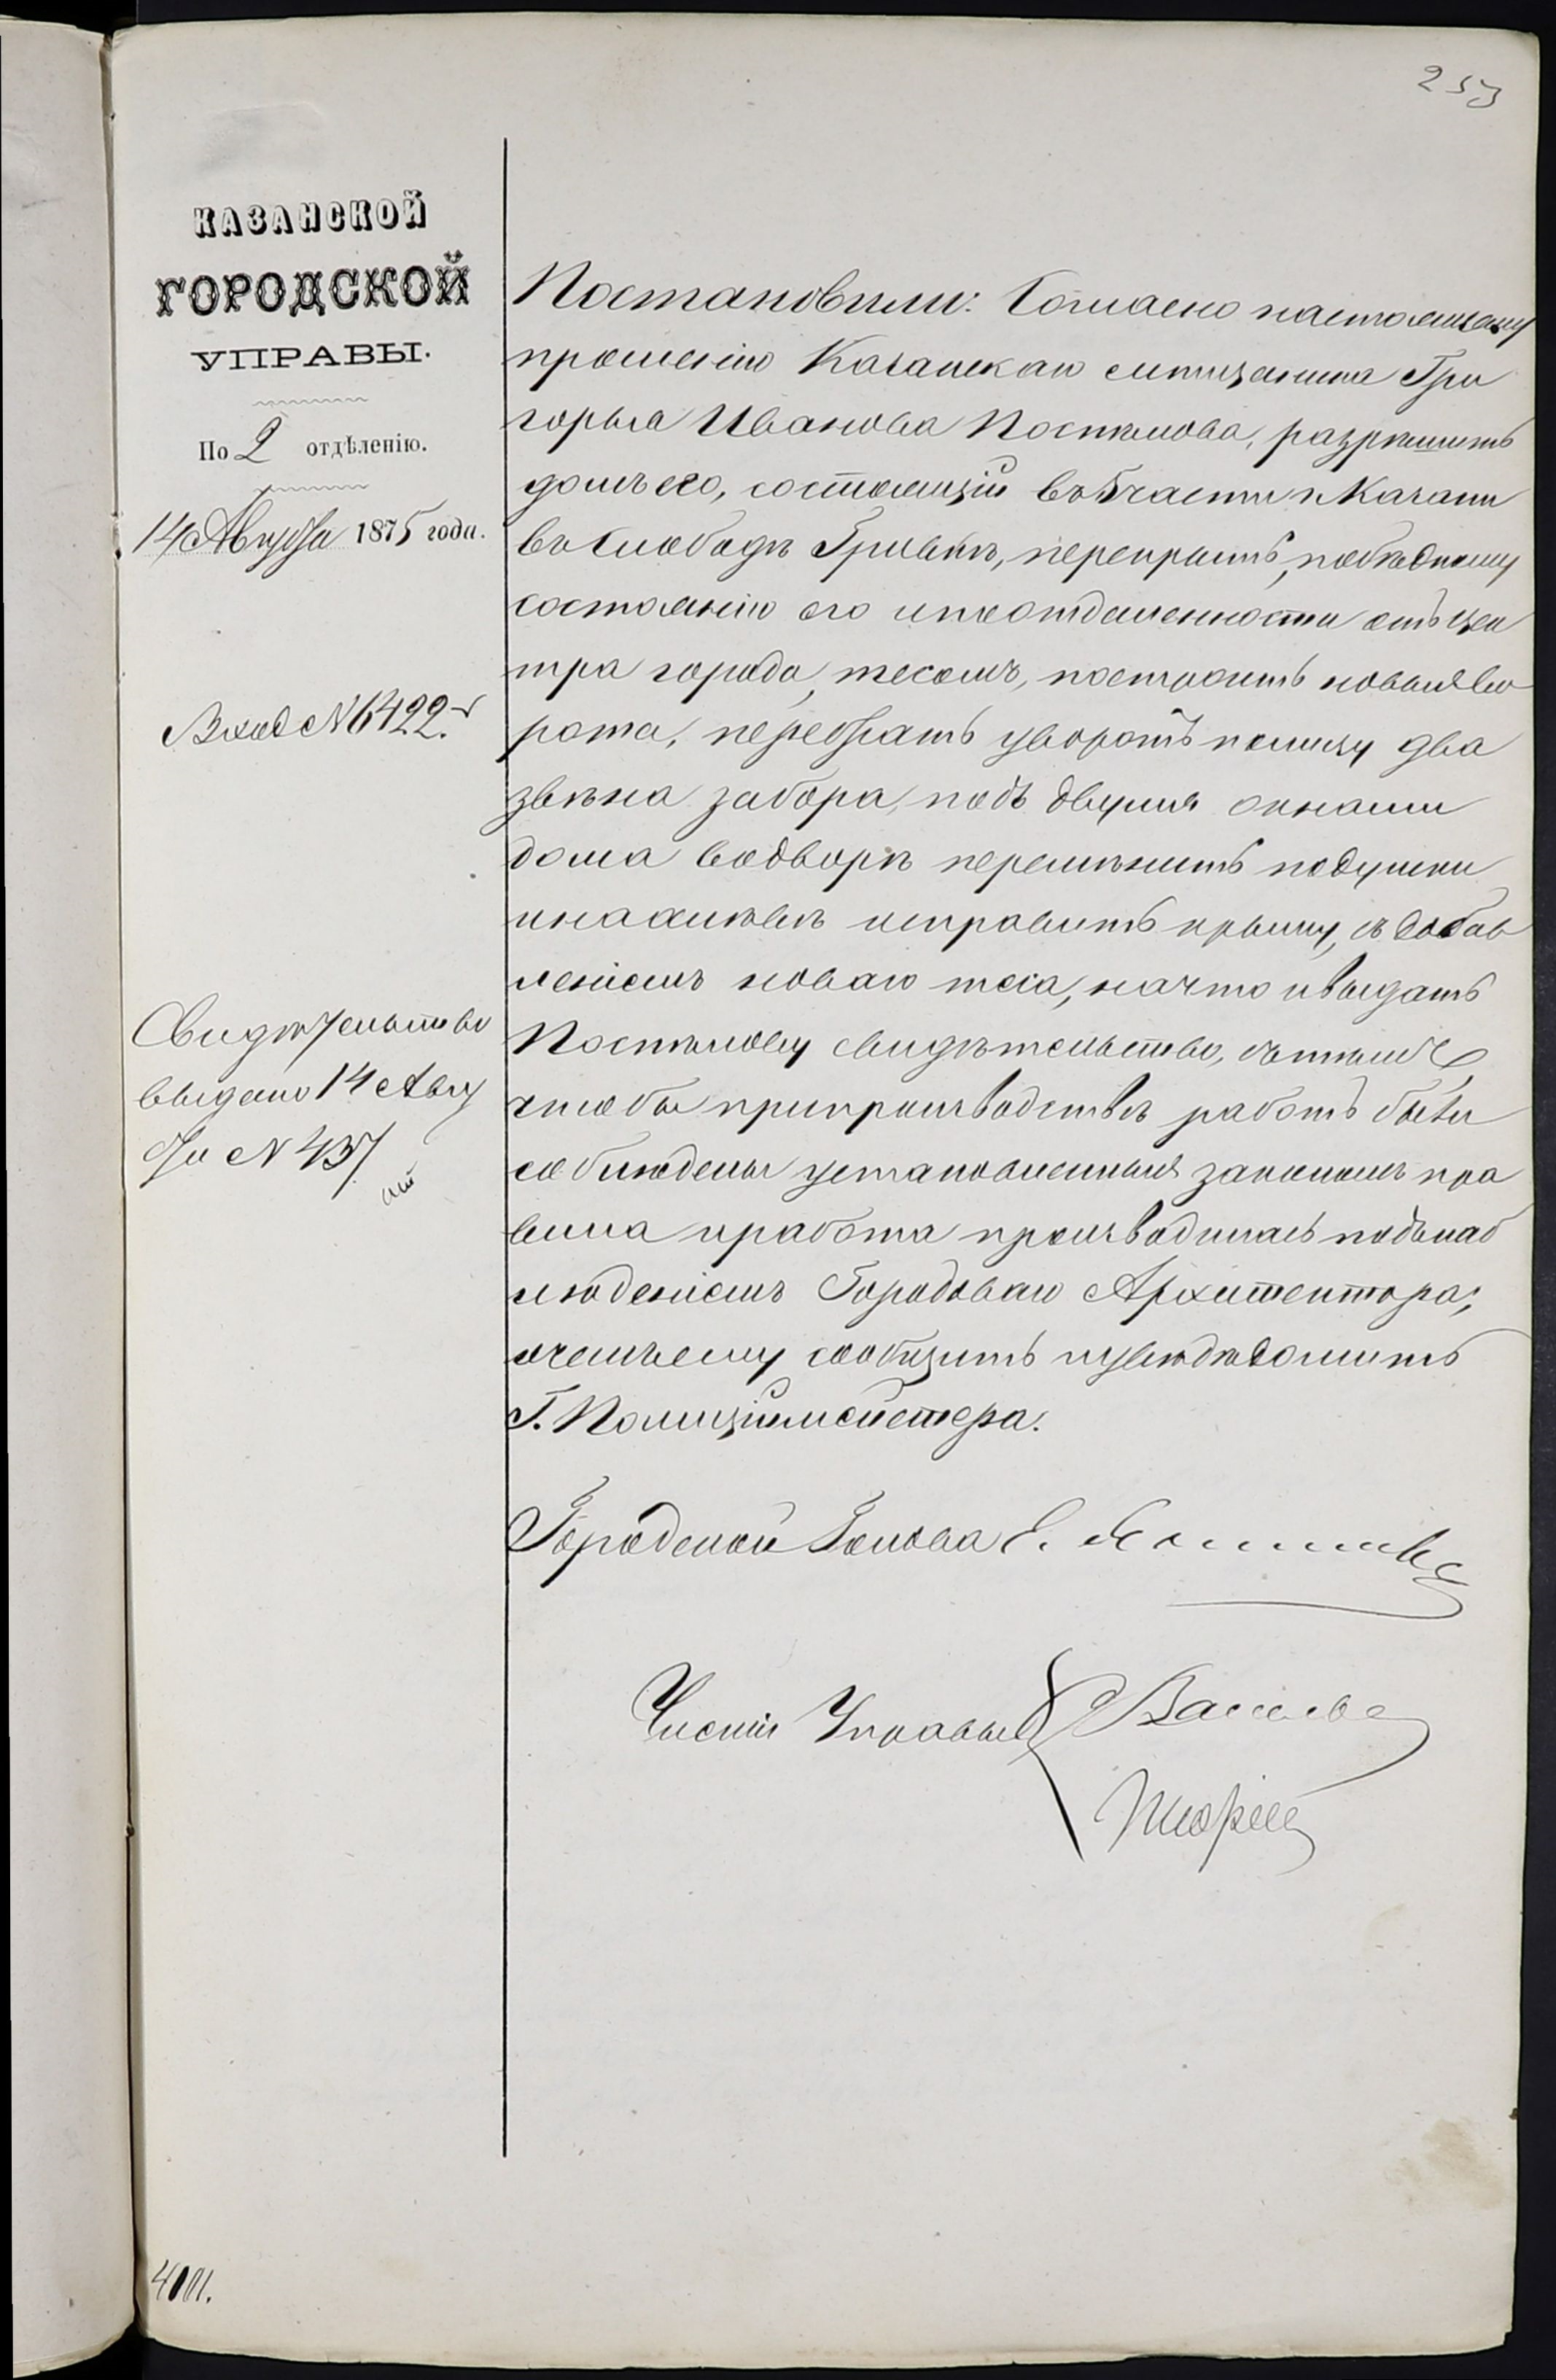 253
КАЗАНСКОЙ
ГОРОДСКОЙ
УПРАВЫ.
По 2 отдѣленію.
14 Августа 1875 года.
Вход № 6422.
Свидѣтельство
выдано 14 Авгу
ста № 437
Постановили: Согласно настоящему
прошенію Казанскаго мѣщанина Гри
горья Иванова Постылова, разрѣшить
домъ его, состоящій въ части г. Казани
въ Слободѣ Гривкѣ, перекрыть, по бѣдному
состоянію его и по отдаленности отъ цен
тра города, тесомъ, построить новыя во
рота, перебрать у воротъ къ низу два
звѣна забора, подъ двумя окнами
дома во дворѣ перемѣнить подушки
и на хлѣвѣ исправить крышу, съ добав
леніемъ новаго теса, на что и выдать
Постылову свидѣтельство, съ тѣмъ
чтобы при производствѣ работъ были
соблюдены установленныя закономъ пра
вила и работа производилась подъ наб
люденіемъ Городоваго Архитектора;
о чемъ ему сообщить и увѣдомить
Г. Полиціймейстера.
Городской Голова Е.
Члены Управы
4101.